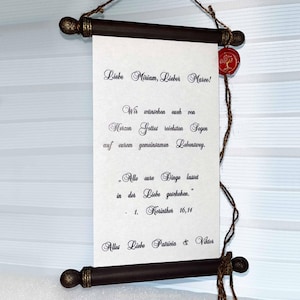 Liebe Miriam, Lieber Marco!
Wir wünschen euch von
Herzen Gottes reichsten Segen
auf eurem gemeinsamen Lebensweg.
„Alle eure Dinge lasset
in der Liebe geschehen."
- 1. Korinther 16,14
Alles Liebe Patrizia & Viktor